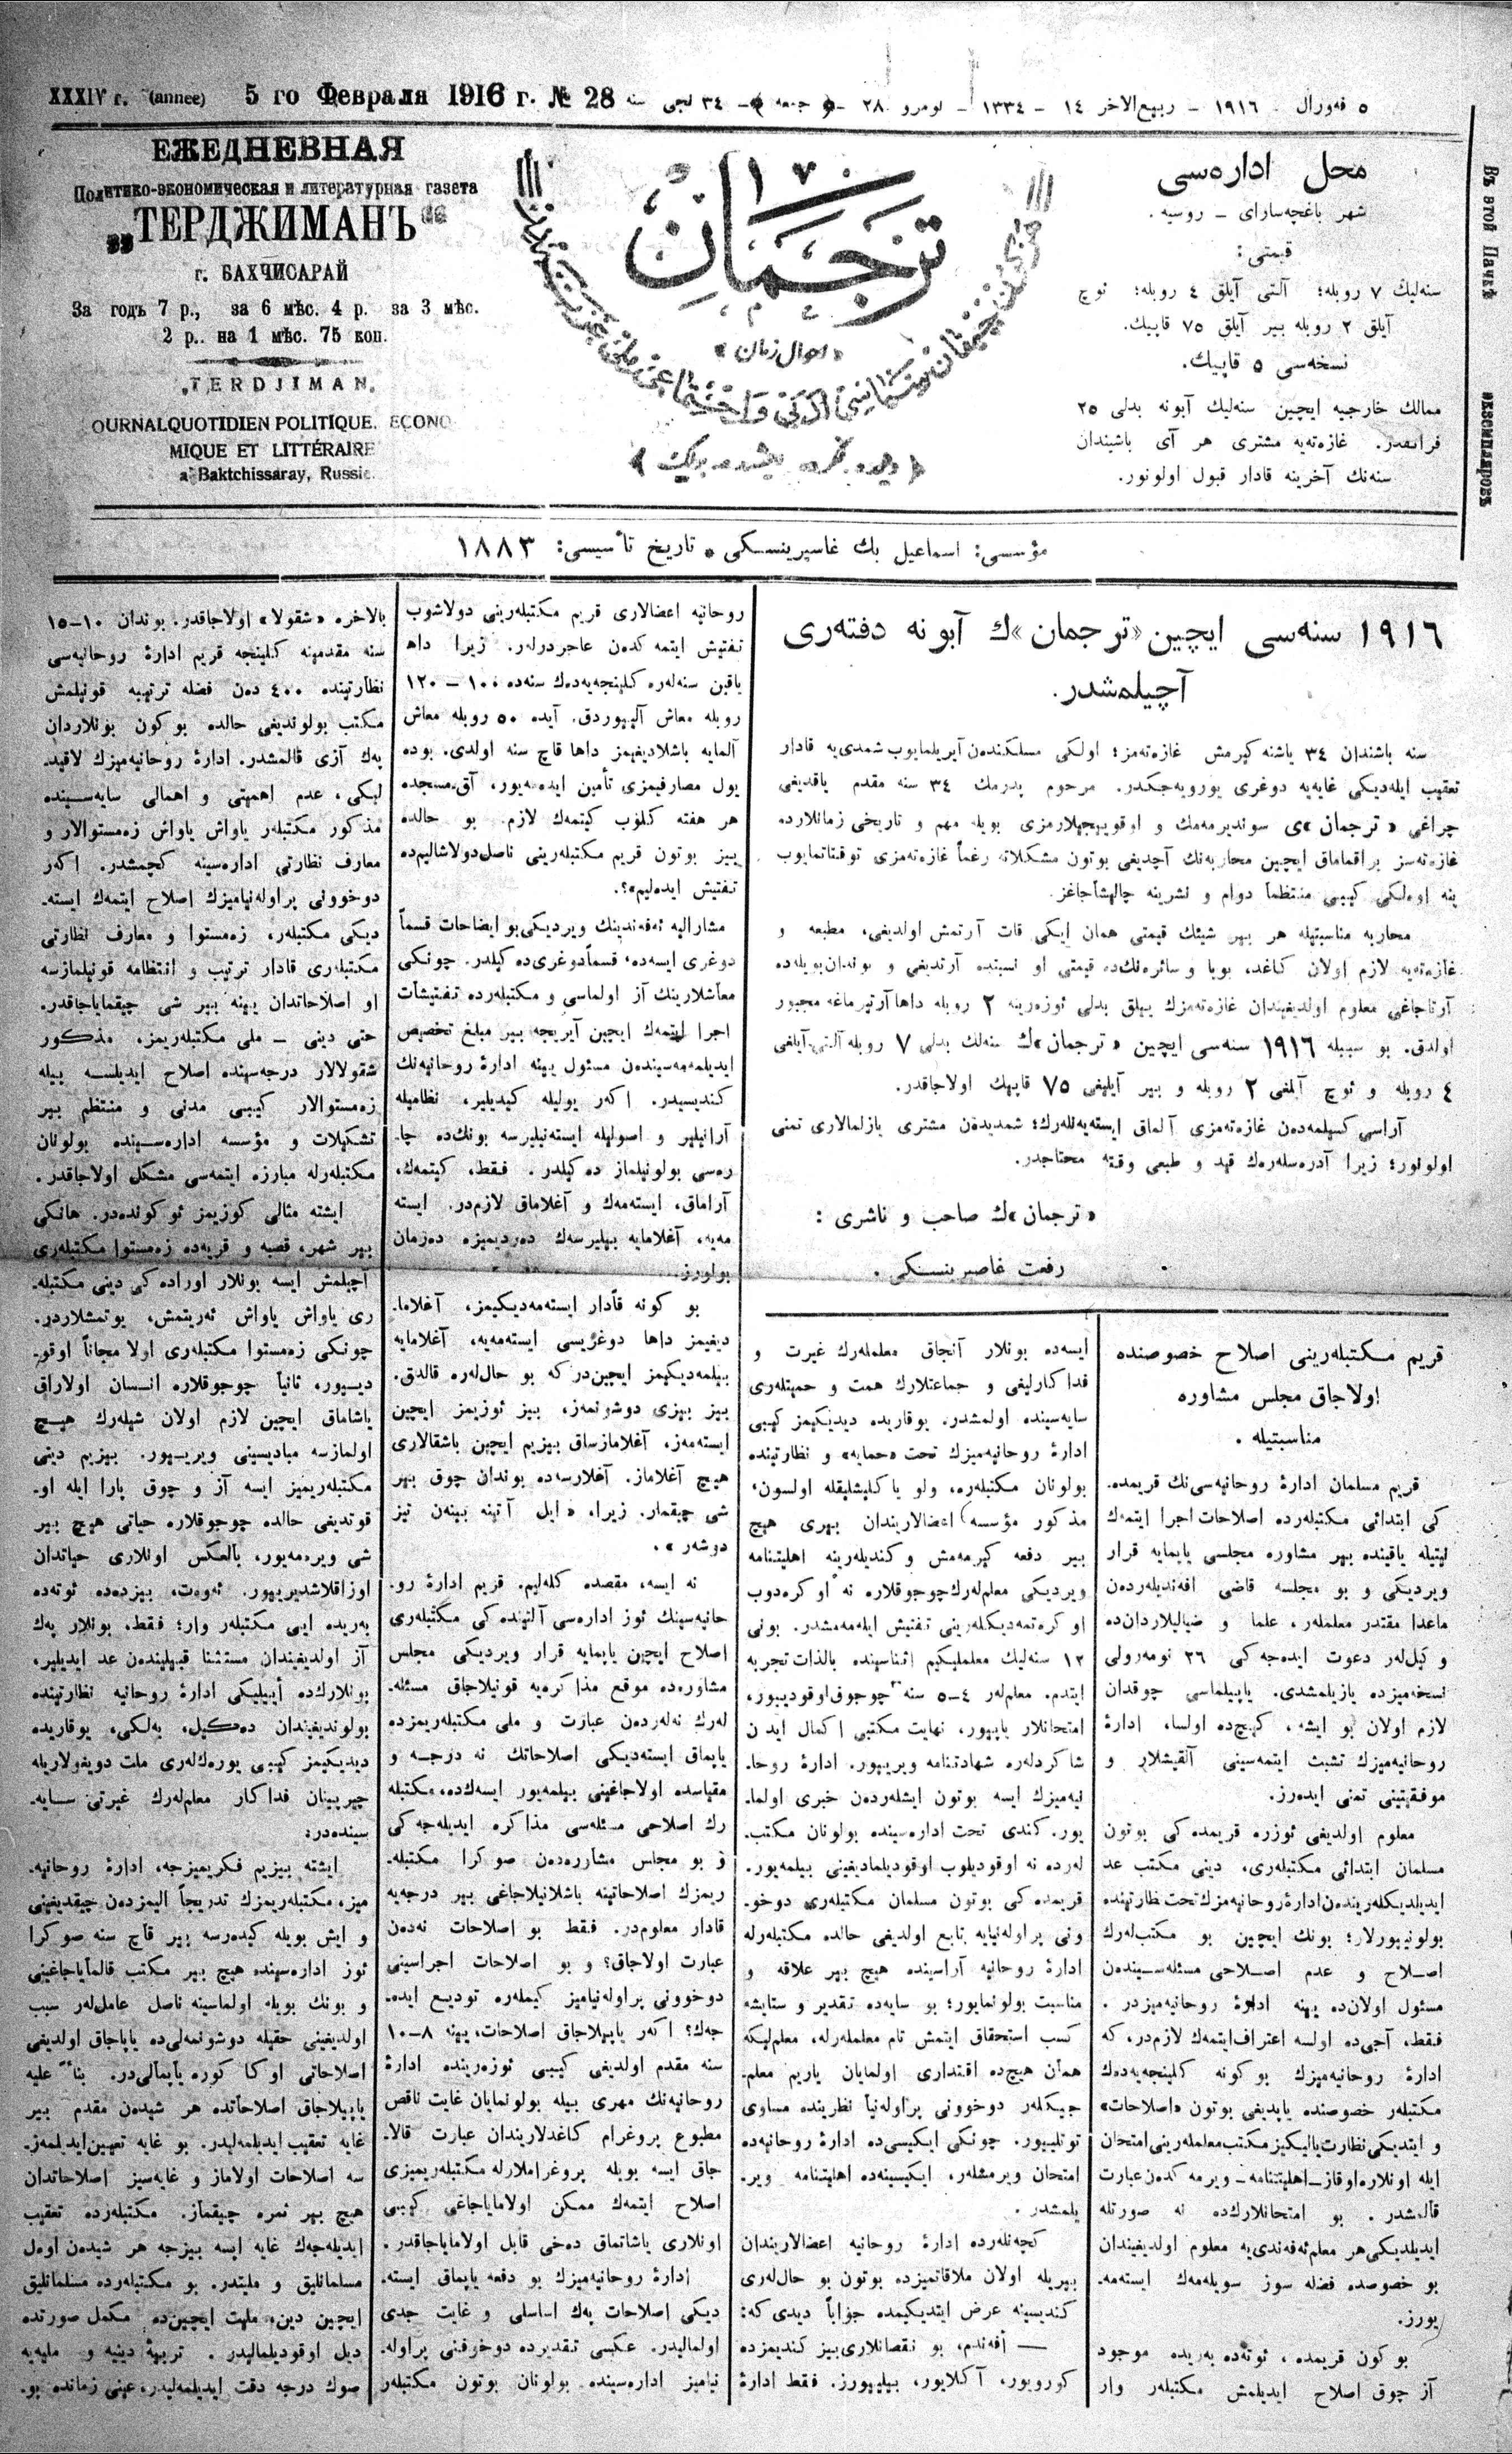 XXXIV г. (annee) 5 го Февраля 1916 г. № 28
٥ فەورال ١٩١٦ - ربیع‌الاخر ١٤ - ١٣٣٤ - نومرو ٢٨ - جمعه - ٣٤ نجی سنه
ЕЖЕДНЕВНАЯ
Политико-экономическая и литературная газета
„ТЕРДЖИМАНЪ“
г. БАХЧИСАРАЙ
За годъ 7 р., за 6 мѣс. 4 р. за 3 мѣс.
2 р.. на 1 мѣс. 75 коп.
„TERDJIMAN„
OURNALQUOTIDIEN POLITIQUE, ECONO
MIQUE ET LITTÉRAIRE
a Baktchissaray, Russie.
ترجمان
«احوال زمان»
محل اداره‌سی
شهر باغچه‌سارای - روسیه .
قیمتی :
سنه‌لیك ٧ روبله؛ آلتی آیلق ٤ روبله؛ ئوچ
آیلق ٢ روبله بیر آیلق ٧٥ قاپیك.
نسخه‌سی ٥ قاپیك.
ممالك خارجیه ایچین سنه‌لیك آبونه بدلی ٢٥
فرانقدر. غازه‌ته‌یه مشتری هر آی باشیندان
سنه‌نك آخرینه قادار قبول اولونور.
Въ этой Пачкѣ экземпляровъ
مؤسسی: اسماعیل بك غاسپرینسکی * تاریخ تأسیسی: ١٨٨٣
١٩١٦ سنه‌سی ایچین «ترجمان»ك آبونه دفته‌ری
آچیلمشدر.
سنه باشندان ٣٤ یاشنه کیرمش غازه‌ته‌مز؛ اولکی مسلکندن آیریلمایوب شمدی‌یه قادار
تعقیب ایله‌دیکی غایه‌یه دوغری یورویه‌جکدر. مرحوم پدرمك ٣٤ سنه مقدم یاقدیغی
چراغی «ترجمان»ی سوندیرمه‌مك و اوقویوچیلارمزی بویله مهم و تاریخی زمانلارده
غازه‌ته‌سز براقماماق ایچین محاربه‌نك آچدیغی بوتون مشکلاته رغماً غازه‌ته‌مزی توقتاتمایوب
ینه اوه‌لکی کیبی منتظماً دوام و نشرینه چالیشاجاغز.
محاربه مناسبتیله هر بیر شیئك قیمتی همان ایکی قات آرتمش اولدیغی، مطبعه و
غازه‌ته‌یه لازم اولان کاغد، بویا و سائره‌نك‌ده قیمتی او نسبتده آرتدیغی و بوندان‌بویله‌ده
آرتاجاغی معلوم اولدیغیندان غازه‌ته‌مزك ییلق بدلی ئوزه‌رینه ٢ روبله داها آرتیرماغه مجبور
اولدق. بو سببله ١٩١٦ سنه‌سی ایچین «ترجمان»ك سنه‌لك بدلی ٧ روبله آلتی آیلغی
٤ روبله و ئوچ آیلغی ٢ روبله و بیر آیلیغی ٧٥ قاپیك اولاجاقدر.
آراسی کسیلمه‌دن غازه‌ته‌مزی آلماق ایسته‌یه‌نله‌رك؛ شمدیدن مشتری یازلمالاری تمنی
اولونور؛ زیرا آدره‌سله‌رك قید و طبعی وقته محتاجدر.
«ترجمان»ك صاحب و ناشری :
رفعت غاصپرینسکی .
قریم مکتبله‌رینی اصلاح خصوصنده
اولاجاق مجلس مشاوره
مناسبتیله .
قریم مسلمان ادارۀ روحانیه‌سی‌نك قریمده‌
کی ابتدائی مکتبله‌رده اصلاحات اجرا ایتمك
نیتیله یاقینده بیر مشاوره مجلسی یاپمایه قرار
ویردیکی و بو مجلسه قاضی افه‌ندیله‌ردن
ماعدا مقتدر معلمله‌ر، علما و ضیالیلاردان‌ده
وکیل‌لەر دعوت ایده‌جه‌کی ٢٦ نومه‌رولی
نسخه‌میزده یازیلمشدی. یاپیلماسی چوقدان
لازم اولان بو ایشه، کیچ‌ده اولسا، ادارۀ
روحانیه‌میزك تشبث ایتمه‌سینی آلقیشلار و
موفقیتینی تمنی ایده‌رز.
معلوم اولدیغی ئوزره قریمده کی بوتون
مسلمان ابتدائی مکتبله‌ری، دینی مکتب عد
ایدیلدیکله‌ریندن ادارۀ روحانیه‌مزك تحت نظارتینده
بولونیورلار؛ بونك ایچین بو مکتب‌له‌رك
اصلاح و عدم اصلاحی مسئله‌سیندن
مسئول اولان‌ده یینه ادارۀ روحانیه‌میزدر .
فقط، آجی‌ده اولسه اعتراف ایتمك لازم‌در، که
ادارۀ روحانیه‌میزك بو کونه کلینجه‌یه‌دك
مکتبله‌ر خصوصنده یاپدیغی بوتون «اصلاحات»
و ایتدیکی نظارت یالیکیز مکتب معلمله‌رینی امتحان
ایله اونلاره اوقاز - اهلیتنامه - ویرمه‌کدن عبارت
قالمشدر . بو امتحانلارك‌ده نه صورتله
ایدیلدیکی هر معلم ئه‌فه‌ندی‌یه معلوم اولدیغیندان
بو خصوصده فضله سوز سویله‌مه‌ك ایسته‌مه‌
یورز.
بو کون قریمده ، ئوته‌ده به‌ریده موجود
آز چوق اصلاح ایدیلمش مکتبله‌ر وار
ایسه‌ده بونلار آنجاق معلمله‌رك غیرت و
فداکارلیغی و جماعتلارك همت و حمیتله‌ری
سایه‌سینده اولمشدر. یوقاریده دیدیکیمز کیبی
ادارۀ روحانیه‌میزك تحت «حمایه» و نظارتینده
بولونان مکتبله‌ره، ولو یاکلیشلیقله اولسون،
مذکور مؤسسه اعضالاریندان بیری هیچ
بیر دفعه کیرمه‌مش و کندیله‌رینه اهلیتنامه
ویردیکی معلم‌له‌رك چوجوقلاره نه اوکره‌دوب
اوکره‌تمه‌دیکله‌رینی تفتیش ایله‌مه‌مشدر. بونی
١٢ سنه‌لیك معلملیکیم اثناسینده بالذات تجربه
ایتدم. معلم‌له‌ر ٤-٥ سنه چوجوق اوقودییور،
امتحانلار یاپییور، نهایت مکتبی اکمال ایدن
شاکردله‌ره شهادتنامه ویرییور. ادارۀ روحا-
نیه‌میزك ایسه بوتون ایشله‌ردن خبری اولما-
یور. کندی تحت اداره‌سینده بولونان مکتب-
له‌رده نه اوقودیلوب اوقودیلمادیغینی بیلمه‌یور.
قریمده کی بوتون مسلمان مکتبله‌ری دوخو-
ونی پراوله‌نیایه تابع اولدیغی حالده مکتبله‌رله
ادارۀ روحانیه آراسینده هیچ بیر علاقه و
مناسبت بولونمایور؛ بو سایه‌ده تقدیر و ستایشه
کسب استحقاق ایتمش تام معلمله‌رله، معلم‌لیکه
همان هیچ‌ده اقتداری اولمایان یاریم معلم-
جیکله‌ر دوخوونی پراوله‌نیا نظرینده مساوی
توتلییور. چونکی ایکیسی‌ده ادارۀ روحانیه‌ده
امتحان ویرمشله‌ر، ایکیسینه‌ده اهلیتنامه ویر-
یلمشدر .
کچه‌نله‌رده ادارۀ روحانیه اعضالاریندان
بیریله اولان ملاقاتمیزده بوتون بو حال‌له‌ری
کندیسینه عرض ایتدیکیمده جواباً دیدی که:
— أفه‌ندم، بو نقصانلاری بیز کندیمزده
کورویور، آکلایور، بیلییورز. فقط ادارۀ
روحانیه اعضالاری قریم مکتبله‌رینی دولاشوب
تفتیش ایتمه‌کدن عاجزدرله‌ر. زیرا داها
یاقین سنه‌له‌ره کلینجه‌یه‌دك سنه‌ده ١٠٠ - ١٢٠
روبله معاش آلییوردق. آیده ٥٠ روبله معاش
آلمایه باشلادیغیمز داها قاچ سنه اولدی. بوده
یول مصارفیمزی تأمین ایده‌مه‌یور، آق‌مسجده
هر هفته کلوب کیتمه‌ك لازم. بو حالده
بیز بوتون قریم مکتبله‌رینی ناصل دولاشالیم‌ده
تفتیش ایده‌لیم؟.
مشارالیه ئه‌فه‌ندینك ویردیکی بو ایضاحات قسماً
دوغری ایسه‌ده، قسماً دوغری‌ده کیلدر. چونکی
معاشلارینك آز اولماسی و مکتبله‌رده تفتیشات
اجرا ایتمه‌ك ایچین آیریجه بیر مبلغ تخصیص
ایدیلمه‌مه‌سیندن مسئول یینه ادارۀ روحانیه‌نك
کندیسیدر. اکر یولیله کیدیلیر، نظامیله
آرانیلیر و اصولیله ایسته‌نیلیرسه بونك‌ده چا-
ره‌سی بولونیلماز ده‌کیلدر. فقط، کیتمه‌ك،
آراماق، ایسته‌مه‌ك و آغلاماق لازم‌در. ایسته
مه‌یه، آغلامایه بیلیرسه‌ك ده‌ردیمیزه ده‌رمان
بولورز.
بو کونه قادار ایسته‌مه‌دیکیمز، آغلاما-
دیغیمز داها دوغریسی ایسته‌مه‌یه، آغلامایه
بیلمه‌دیکیمز ایچین‌در که بو حال‌له‌ره قالدق.
بیز بیزی دوشونمه‌ز، بیز ئوزیمز ایچین
ایسته‌مه‌ز، آغلامازساق بیزیم ایچین باشقالاری
هیچ آغلاماز. آغلارسه‌ده بوندان چوق بیر
شی چیقمار. زیرا، «ایل آتینه بینه‌ن تیز
دوشه‌ر» .
نه ایسه، مقصده کله‌لیم. قریم ادارۀ رو-
حانیه‌سینك ئوز اداره‌سی آلتینده کی مکتبله‌ری
اصلاح ایچین یاپمایه قرار ویردیکی مجلس
مشاوره‌ده موقع مذاکره‌یه قونیلاجاق مسئله-
له‌رك نه‌له‌ردن عبارت و ملی مکتبله‌ریمزده
یاپماق ایسته‌دیکی اصلاحاتك نه درجه و
مقیاسده اولاجاغینی بیلمه‌یور ایسه‌ك‌ده، مکتبله
رك اصلاحی مسئله‌سی مذاکره ایدیله‌جه کی
و بو مجلس مشاوره‌دن صوکرا مکتبله-
ریمزك اصلاحاتینه باشلانیلاجاغی بیر درجه‌یه
قادار معلوم‌در. فقط بو اصلاحات نه‌دن
عبارت اولاجاق؟ و بو اصلاحات اجراسینی
دوخوونی پراوله‌نیامیز کیمله‌ره تودیع ایده-
جه‌ك؟ اکر یاپیلاجاق اصلاحات، یینه ٨-١٠
سنه مقدم اولدیغی کیبی ئوزه‌رینده ادارۀ
روحانیه‌نك مهری بیله بولونمایان غایت ناقص
مطبوع پروغرام کاغدلاریندان عبارت قالا-
جاق ایسه بویله پروغراملارله مکتبله‌ریمیزی
اصلاح ایتمه‌ك ممکن اولامایاجاغی کیبی
اونلاری یاشاتماق ده‌خی قابل اولامایاجاقدر.
ادارۀ روحانیه‌میزك بو دفعه یاپماق ایسته-
دیکی اصلاحات پك اساسلی و غایت جدی
اولمالیدر. عکسی تقدیرده دوخوفنی پراوله-
نیامیز اداره‌سینده بولونان بوتون مکتبله‌ر
بالاخره «شقولا» اولاجاقدر. بوندان ١٠-١٥
سنه مقدمینه کلینجه قریم ادارۀ روحانیه‌سی
نظارتینده ٤٠٠ دن فضله ترتیبه قونیلمش
مکتب بولوندیغی حالده بو کون بونلاردان
پك آزی قالمشدر. ادارۀ روحانیه‌میزك لاقید-
لیکی، عدم اهمیتی و اهمالی سایه‌سینده
مذکور مکتبله‌ر یاواش یاواش زه‌مستوالار و
معارف نظارتی اداره‌سینه کچمشدر. اکر
دوخوونی پراوله‌نیامیزك اصلاح ایتمه‌ك ایسته-
دیکی مکتبله‌ر، زه‌مستوا و معارف نظارتی
مکتبله‌ری قادار ترتیب و انتظامه قونیلمازسه
او اصلاحاتدان یینه بیر شی چیقمایاجاقدر.
حتی دینی - ملی مکتبله‌ریمز، مذکور
شقولالار درجه‌سینده اصلاح ایدیلسه بیله
زه‌مستوالار کیبی مدنی و منتظم بیر
تشکیلات و مؤسسه اداره‌سینده بولونان
مکتبله‌رله مبارزه ایتمه‌سی مشکل اولاجاقدر.
ایشته مثالی کوزیمز ئوکونده‌در. هانکی
بیر شهر، قصبه و قریه‌ده زه‌مستوا مکتبله‌ری
آچیلمش ایسه بونلار اوراده کی دینی مکتبله-
ری یاواش یاواش ئه‌ریتمش، یوتمشلاردر.
چونکی زه‌مستوا مکتبله‌ری اولا مجاناً اوقو-
دییور، ثانیاً چوجوقلاره انسان اولاراق
یاشاماق ایچین لازم اولان شیله‌رك هیچ
اولمازسه مبادیسینی ویرییور. بیزیم دینی
مکتبله‌ریمیز ایسه آز و چوق پارا ایله او-
قوتدیغی حالده چوجوقلاره حیاتی هیچ بیر
شی ویرمه‌یور، بالعکس اونلاری حیاتدان
اوزاقلاشدیرییور. ئه‌وه‌ت، بیزده‌ده ئوته‌ده
به‌ریده ایی مکتبله‌ر وار؛ فقط، بونلار پك
آز اولدیغیندان مستثنا قبیلیندن عد ایدیلیر،
بونلارك‌ده أییلیکی ادارۀ روحانیه نظارتینده
بولوندیغیندان ده‌کیل، به‌لکی، یوقاریده
دیدیکیمز کیبی یوره‌ك‌له‌ری ملت دویغولاریله
چیرپینان فداکار معلم‌له‌رك غیرتی سایه-
سینده‌در.
ایشته بیزیم فکریمیزجه، ادارۀ روحانیه-
میز، مکتبله‌ریمزك تدریجاً الیمزدن چیقدیغینی
و ایش بویله کیده‌رسه بیر قاچ سنه صوکرا
ئوز اداره‌سینده هیچ بیر مکتب قالمایاجاغینی
و بونك بویله اولماسینه ناصل عامل‌له‌ر سبب
اولدیغینی حقیله دوشونمه‌لی‌ده یاپاجاق اولدیغی
اصلاحاتی اوکا کوره یاپمالی‌در. بناءً علیه
یاپیلاجاق اصلاحاتده هر شیدن مقدم بیر
غایه تعقیب ایدیلمه‌لیدر. بو غایه تعیین ایدیلمه‌ز-
سه اصلاحات اولاماز و غایه‌سیز اصلاحاتدان
هیچ بیر ثمره چیقماز. مکتبله‌رده تعقیب
ایدیله‌جه‌ك غایه ایسه بیزجه هر شیدن اوه‌ل
مسلمانلیق و ملیتدر. بو مکتبله‌رده مسلمانلیق
ایچین دین، ملیت ایچین‌ده مکمل صورتده
دیل اوقودیلمالیدر . تربیۀ دینیه و ملیه‌یه
صوك درجه دقت ایدیلمه‌لیدر، عینی زمانده بو-